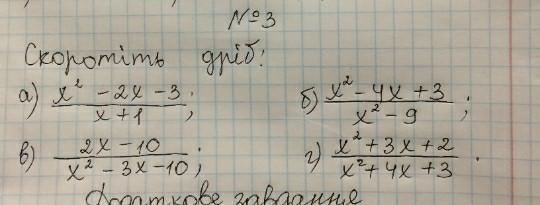 №3
Скоротіть дріб:
а) (x² - 2x - 3)/(x + 1); б) (x² - 4x + 3)/(x² - 9);
в) (2x - 10)/(x² - 3x - 10); г) (x² + 3x + 2)/(x² + 4x + 3).
Додаткове завдання